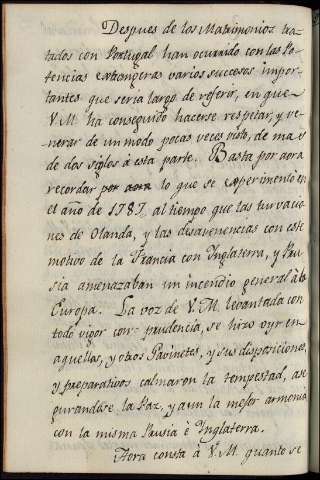 Despues de los Matrimonios tra-
tados con Portugal han ocurrido con las Po-
tencias extrangeras varios succesos impor-
tantes que seria largo de referir, en que
V.M. ha conseguido hacerse respetar, y ve-
nerar de un modo pocas veces visto, de mas
de dos siglos à esta parte. Basta por aora
recordar por aora lo que se experimentò en
el año de 1787 al tiempo que las turvacio-
nes de Olanda, y las desavenencias con este
motivo de la Francia con Ynglaterra, y Pru-
sia amenazaban un incendio general à la
Europa. La voz de V.M. levantada con
todo vigor con prudencia, se hizo oyr en
aquellas, y otros Gavinetes, y sus disposiciones,
y preparativos calmaron la tempestad, ase-
gurandose la Paz, y aun la mejor armonia
con la misma Prusia è Ynglaterra.
Aora consta à V.M. quanto se